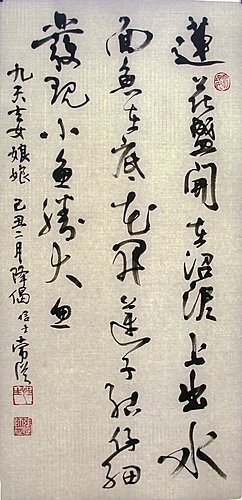 蓮花盛開在沼泥上出水
面魚在底花開蓮子結仔細
發現小魚勝大魚
九天玄女娘娘 己丑二月降偈 信士常